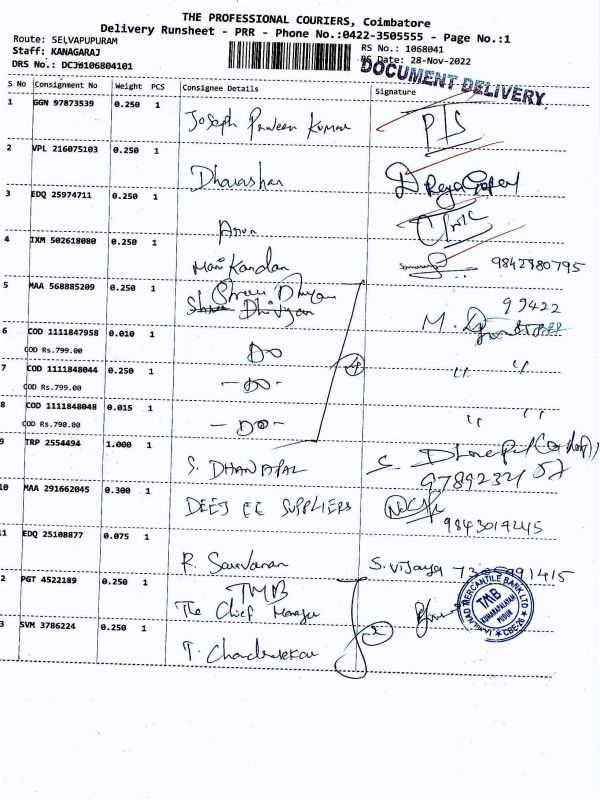 THE PROFESSIONAL COURIERS, Coimbatore
Delivery Runsheet - PRR - Phone No.:0422-3505555 - Page No.:1
Route: SELVAPUPURAM
RS No.: 1068041
Staff: KANAGARAJ
RS Date: 28-Nov-2022
DRS No.: DCJB106804101
DOCUMENT DELIVERY
S No Consignment No Weight PCS Consignee Details Signature
1 GGN 97873539 0.250 1
Joseph Praveen Kumar
2 VPL 216075103 0.250 1
Dharashan
3 EDQ 25974711 0.250 1
Arun
4 IXM 502618080 0.250 1
Mani Kandan 9842980795
5 MAA 568885209 0.250 1
Shree Dhiyan 99422
Dhivyan M.
6 COD 1111847958 0.010 1
COD Rs.799.00 Do
7 COD 1111848044 0.250 1 4
COD Rs.799.00 -Do- " "
8 COD 1111848048 0.015 1
COD Rs.790.00 -Do- " "
9 TRP 2554494 1.000 1
S. DHANAPAL S.
10 MAA 291662045 0.300 1
DEEJ EE SUPPLIERS
9843017445
11 EDQ 25108877 0.075 1
R. Saravanan S. Vijaya
2 PGT 4522189 0.250 1 TMB
The Chief Manager 2
3 SVM 3786224 0.250 1
T. Chandrasekar
TAMILNAD MERCANTILE BANK LTD
TMB
KUMARAPALAYAM
PUDUR
CBE-26